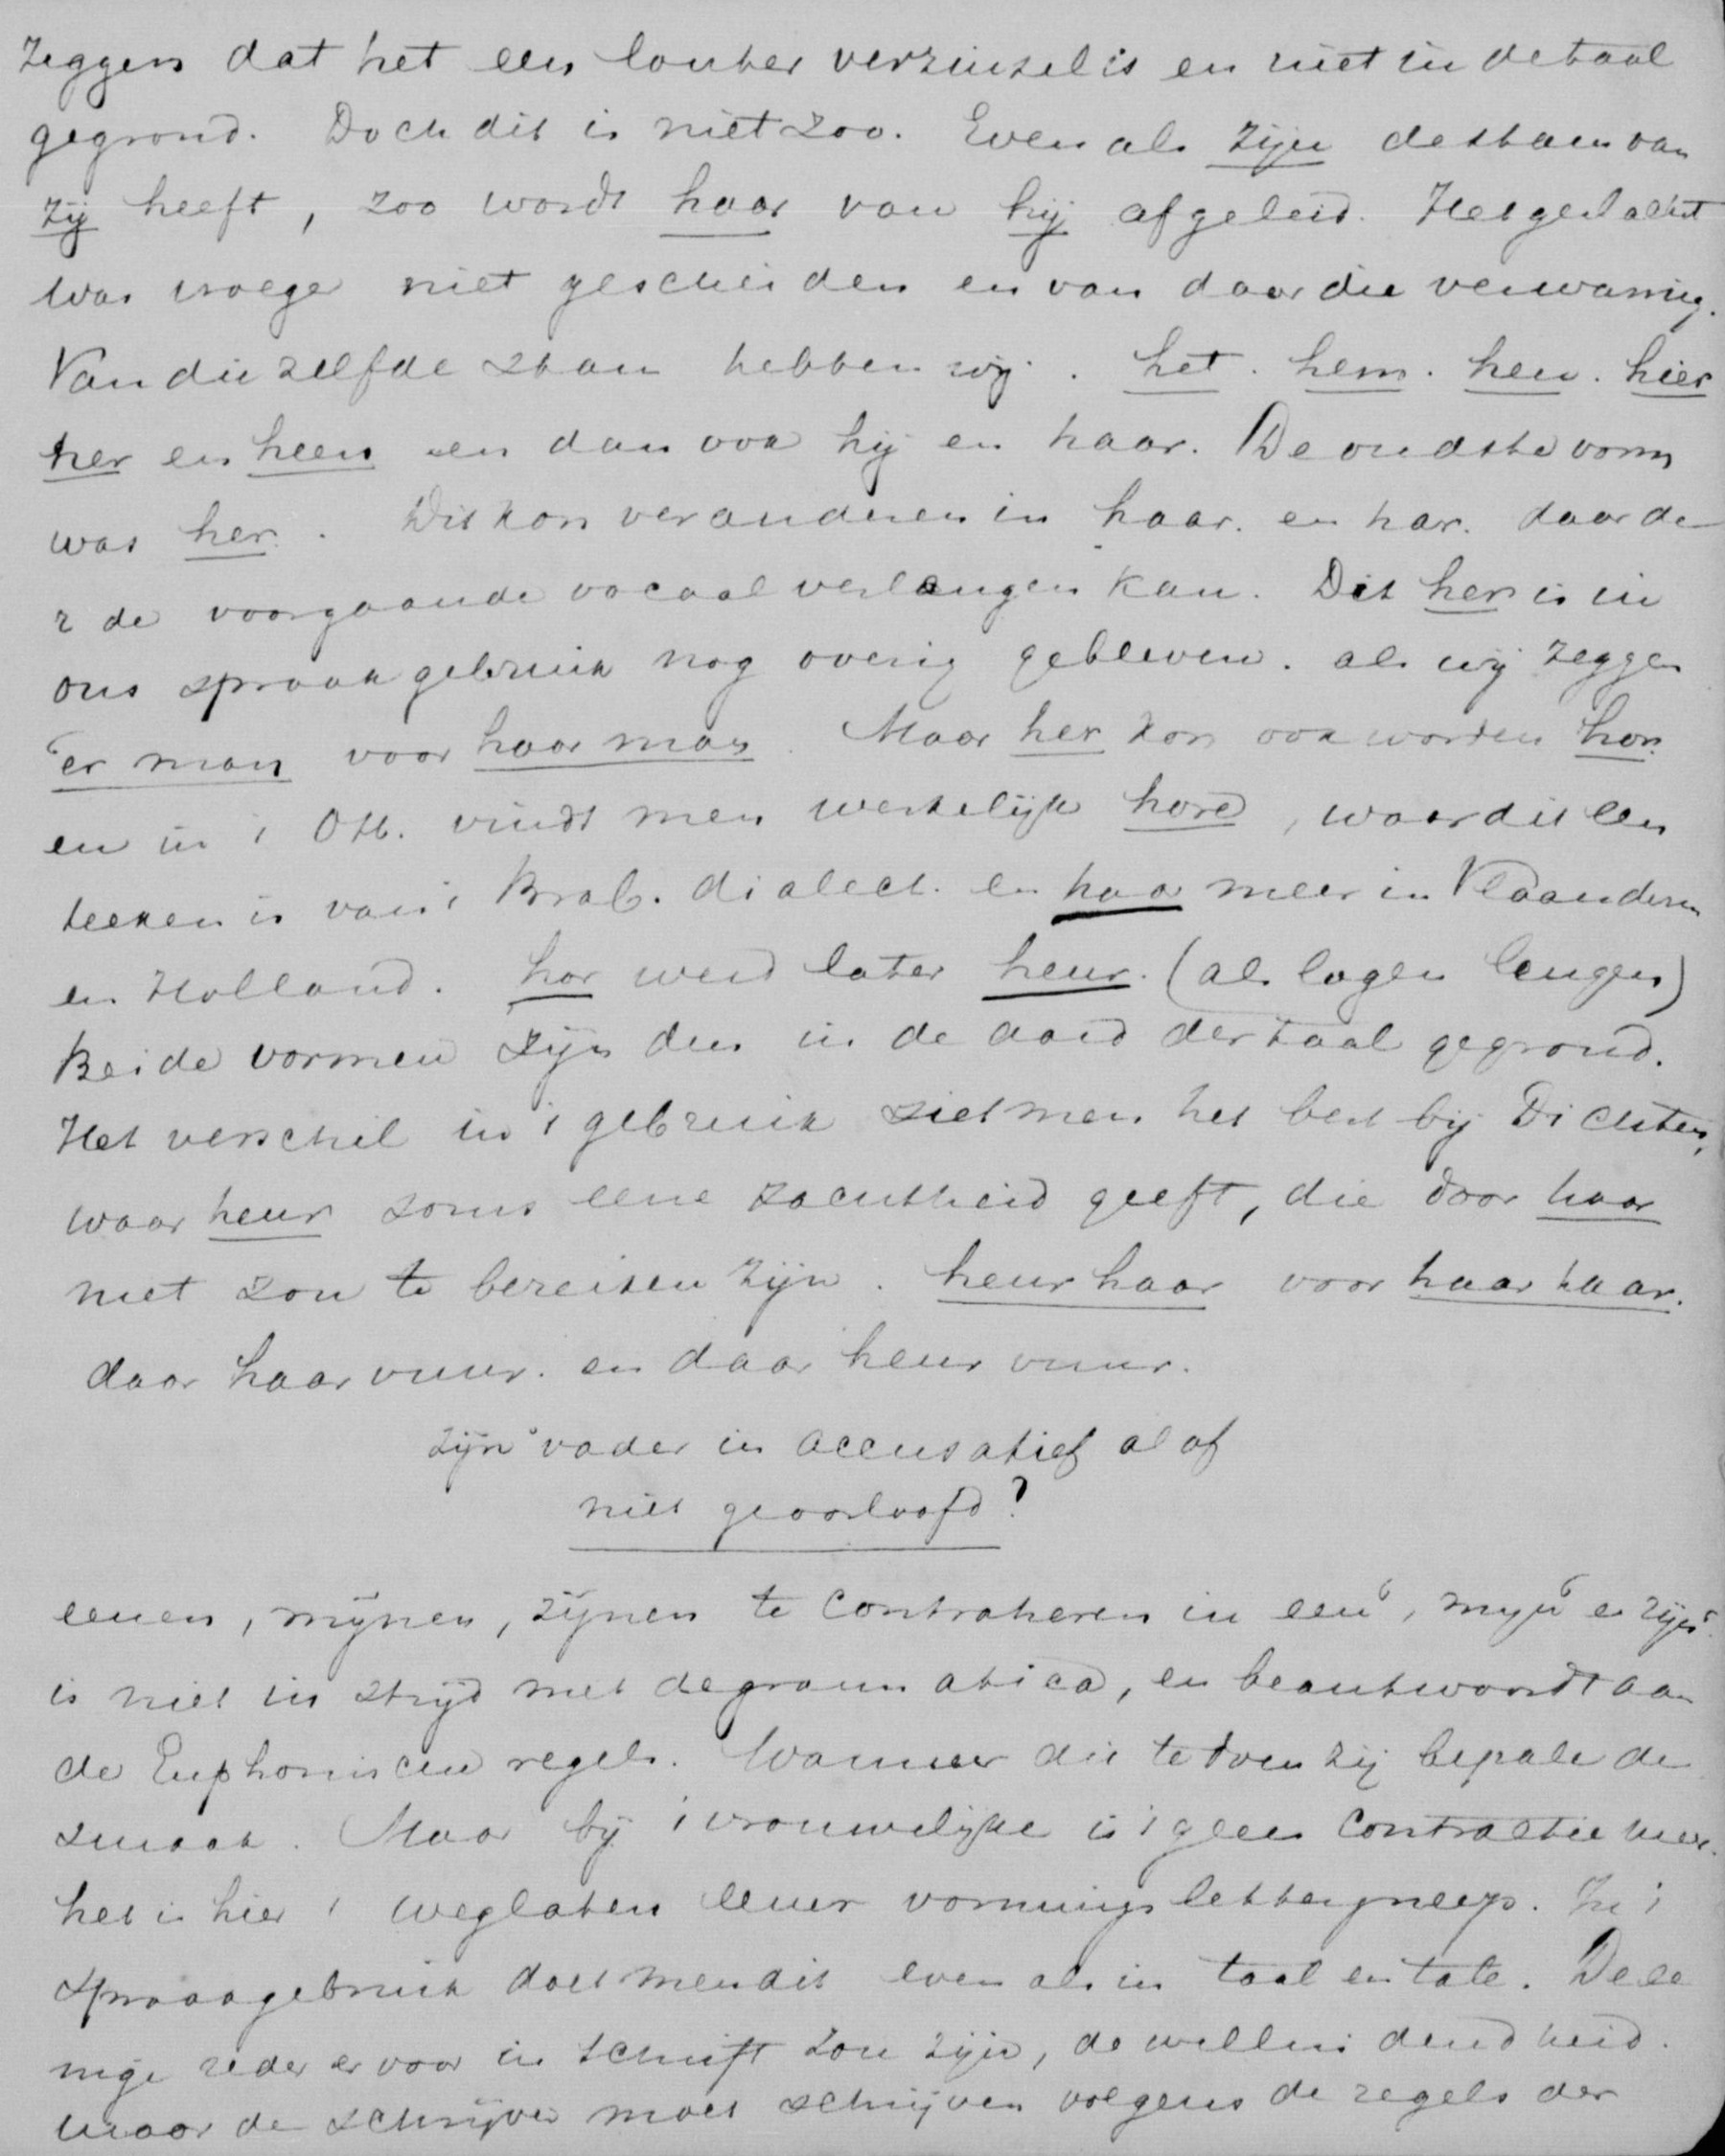 zeggen dat het een louter verzinzel is en niet in de taal
gegrond. Doch dit is niet zoo. Even als zijn de stam van
zij heeft, zoo wordt haar van hij afgeleid. Het geslacht
was vroeger niet gescheiden en van daar die verwarring.
Van die zelfde stam hebben wij. het. hem. hen. hier
her en heen en dan ook hij en haar. De oudste vorm
was her. Dit kon veranderen in haar. en har. daar de
r de voorgaande vocaal verlengen kan. Dit her is in
ons spraakgebruik nog overig gebleven. als wij zeggen
'er man voor haar man. Maar her kon ook worden hor.
en in 't Oth. vindt men werkelijk hore, waar dit een
teeken is van 't Brab. dialect. en haar meer in Vlaanderen
en Holland. hor werd later heur. (als logen leugen)
Beide vormen zijn dus in de aard der taal gegrond.
Het verschil in 't gebruik ziet men het best bij Dichters,
waar heur soms eene zachtheid geeft, die door haar
niet zou te bereiken zijn. heur haar voor haar haar.
daar haar vuur. en daar heur vuur.
zijn' vader in accusatief al of
niet geoorloofd?
eenen, mijnen, zijnen te contraheren in een', mijn' en zijn'
is niet in strijd met de grammatica, en beantwoordt aan
de Euphonische regels. Wanneer dit te doen zij bepale de
smaak. Maar bij 't vrouwelijke is 't geen contractie meer.
het is hier 't weglaten eener vormingslettergreep. In 't
spraakgebruik doet men dit even als in taal en tale. De ee
nige reder er voor in schrift zou zijn, de welluidendheid.
maar de schrijver moet schrijven volgens de regels der